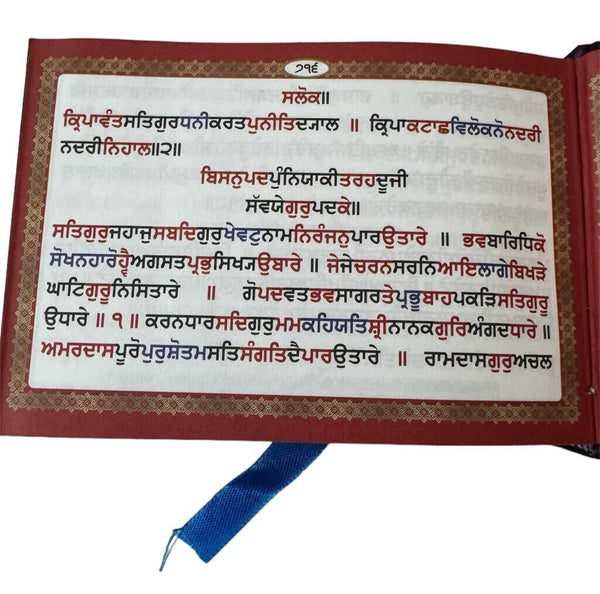 ੭੧੬
ਸਲੋਕ॥
ਕ੍ਰਿਪਾਵੰਤਸਤਿਗੁਰਧਨੀਕਰਤਪੁਨੀਤਿਦਯਾਲ ॥ ਕ੍ਰਿਪਾਕਟਾਛਵਿਲੋਕਨੋਨਦਰੀ
ਨਦਰੀਨਿਹਾਲ॥੨॥
ਬਿਸਨੁਪਦਪੁੰਨਿਯਾਕੀਤਰਹਦੂਜੀ
ਸੱਵਯੇਗੁਰੁਪਦਕੇ॥
ਸਤਿਗੁਰੁਜਹਾਜੁਸਬਦਿਗੁਰੁਖੇਵਟੁਨਾਮਨਿਰੰਜਨੁਪਾਰਉਤਾਰੇ ॥ ਭਵਬਾਰਿਧਿਕੋ
ਸੋਖਨਹਾਰੋਹ੍ਵੈਅਗਸਤਪ੍ਰਭੁਸਿਖ੍ਯਉਬਾਰੇ ॥ ਜੇਜੇਚਰਨਸਰਨਿਆਇਲਾਗੇਬਿਖੜੇ
ਘਾਟਿਗੁਰੂਨਿਸਿਤਾਰੇ ॥ ਗੋਪਦਵਤਭਵਸਾਗਰਤੇਪ੍ਰਭੂਬਾਹਪਕੜਿਸਤਿਗੁਰੂ
ਉਧਾਰੇ ॥ ੧ ॥ ਕਰਨਧਾਰਸਦਿਗੁਰੁਮਮਕਹਿਯਤਿਸ਼੍ਰੀਨਾਨਕਗੁਰਿਅੰਗਦਧਾਰੇ ॥
ਅਮਰਦਾਸਪੂਰੋਪੁਰਸ਼ੋਤਮਸਤਿਸੰਗਤਿਦੈਪਾਰਉਤਾਰੇ ॥ ਰਾਮਦਾਸਗੁਰੁਅਚਲ